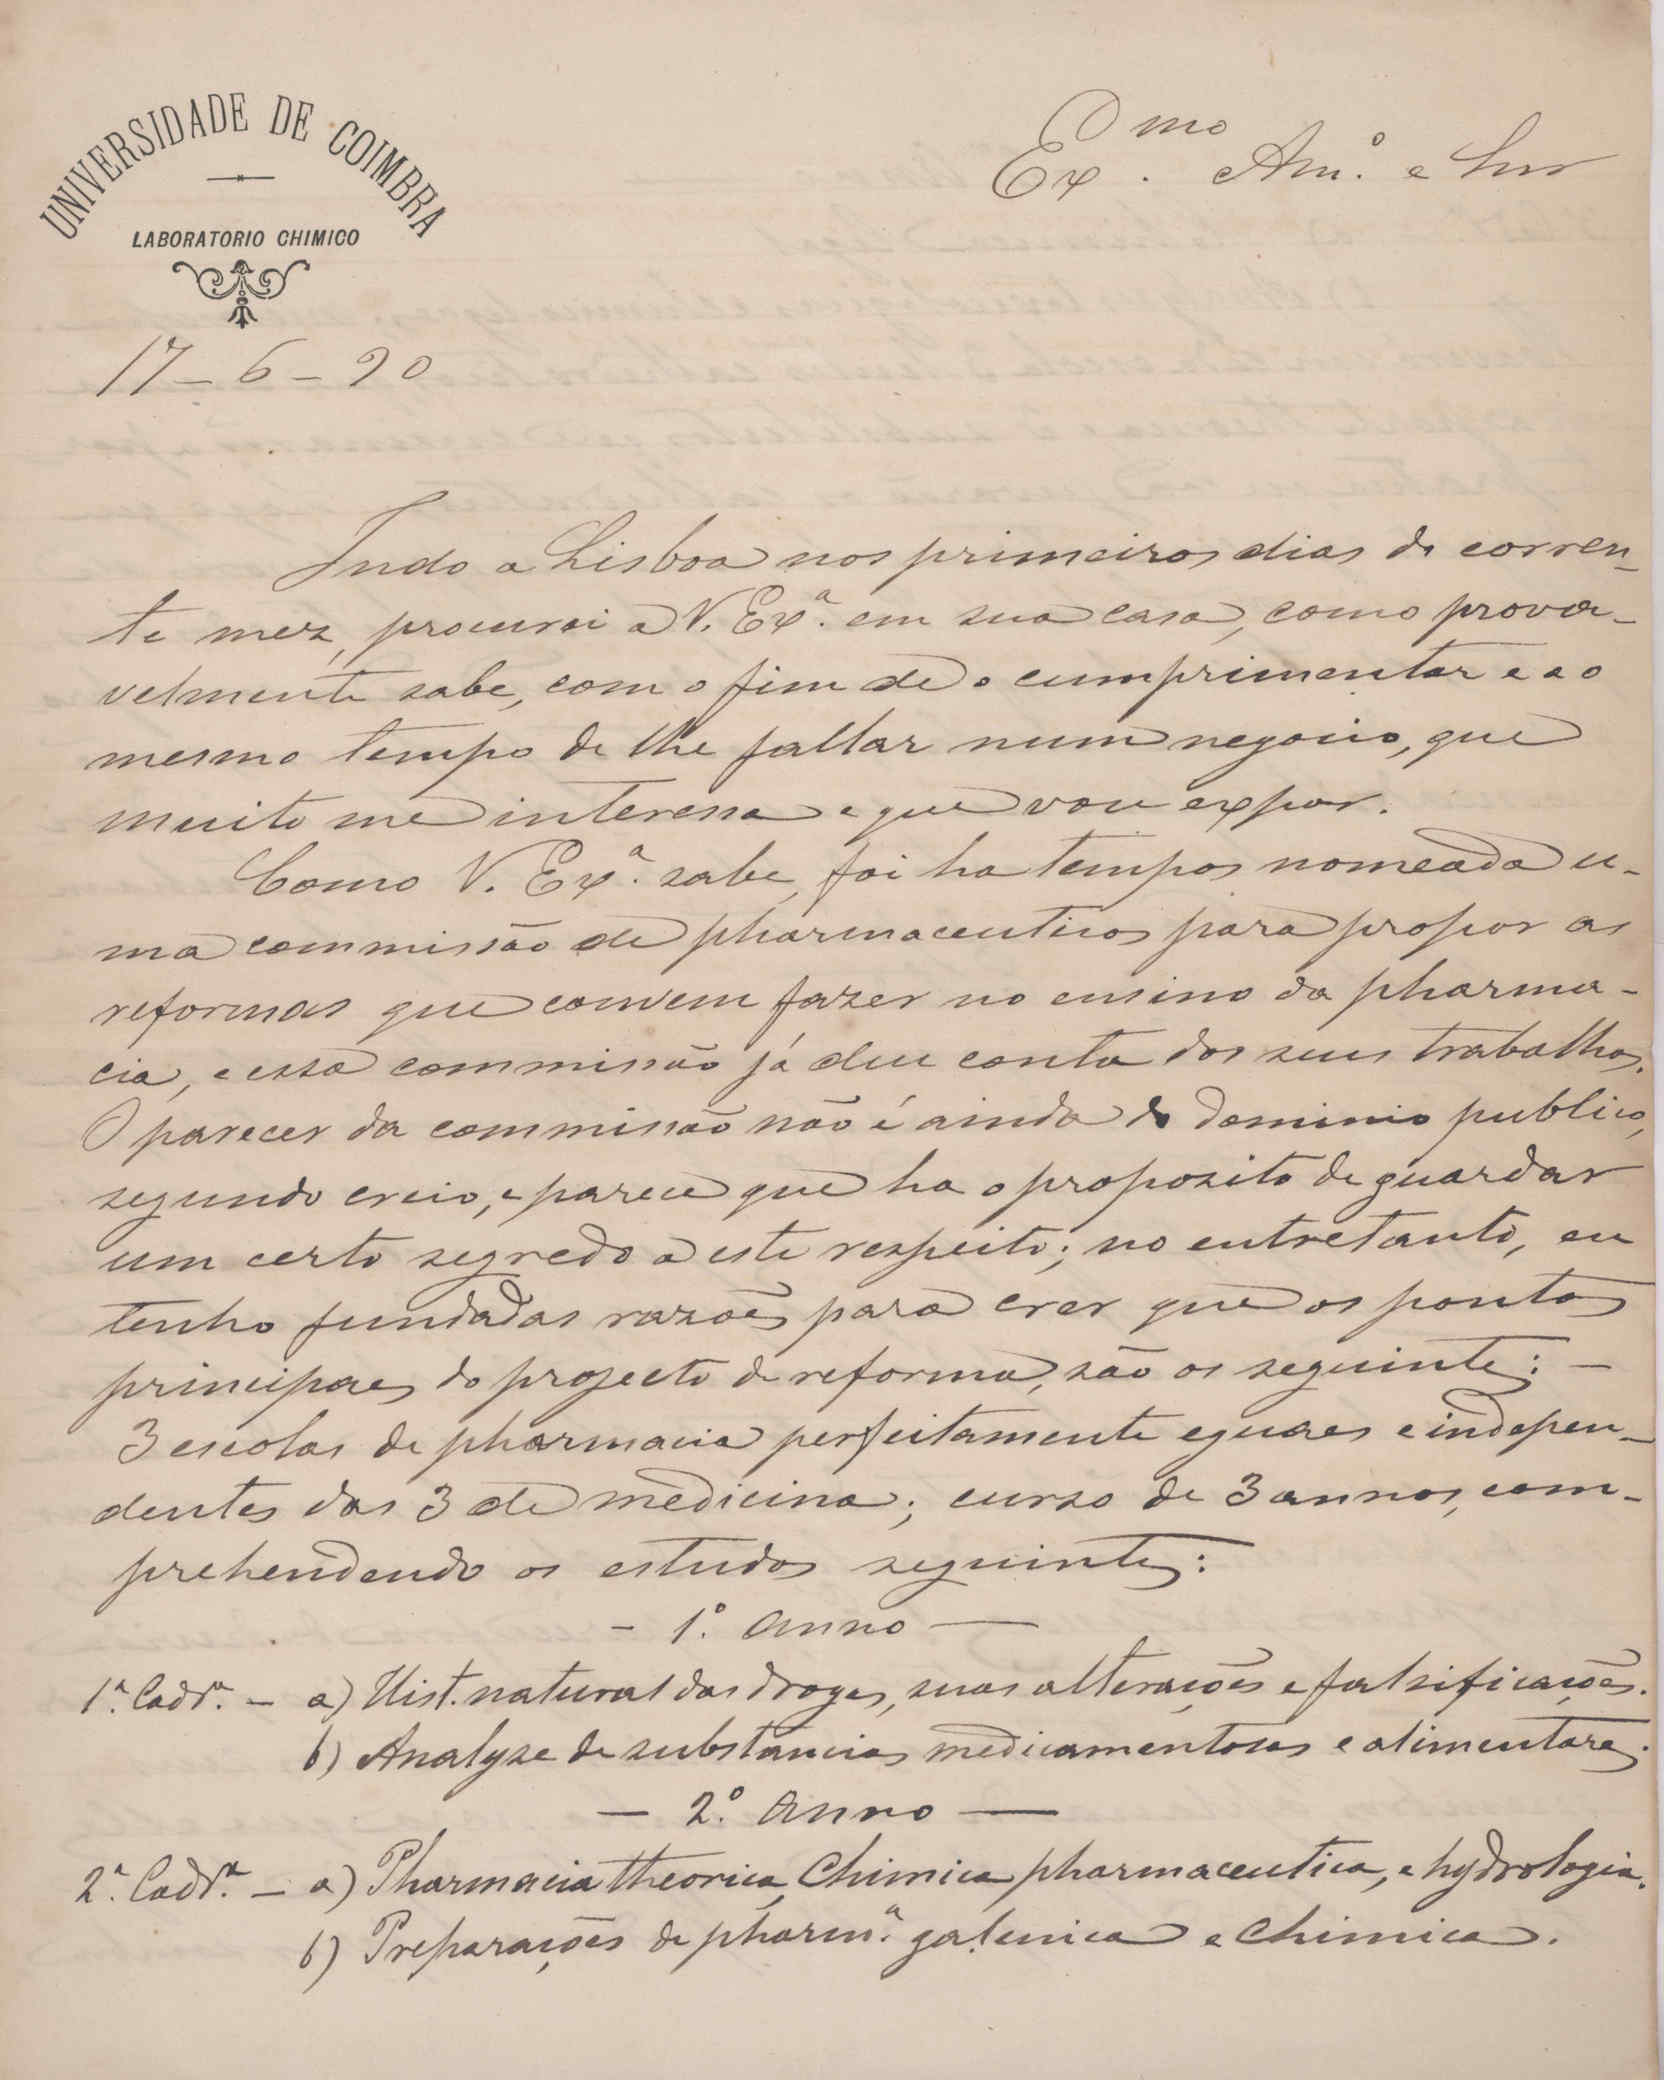 UNIVERSIDADE DE COIMBRA
LABORATORIO CHIMICO
Ex.mo Am.o e Snr
17-6-90
Indo a Lisboa nos primeiros dias do corren-
te mez, procurei a V. Ex.a em sua casa, como prova-
velmente sabe, com o fim de o cumprimentar e ao
mesmo tempo de lhe fallar num negocio, que
muito me interessa e que vou expor.
Como V. Ex.a sabe, foi ha tempos nomeada u-
ma commissão de pharmaceuticos para propor as
reformas que convem fazer no ensino da pharma-
cia, e essa commissão já deu conta dos seus trabalhos.
O parecer da commissão não é ainda do dominio publico,
segundo creio, e parece que ha o proposito de guardar
um certo segredo a este respeito; no entretanto, eu
tenho fundadas razões para crer que os pontos
principaes do projecto de reforma, são os seguintes: —
3 escolas de pharmacia perfeitamente eguaes e indepen-
dentes das 3 de medicina; curso de 3 annos, com-
prehendendo os estudos seguintes:
— 1.o anno —
1.a Cadr.a — a) Hist. natural das drogas, suas alterações e falsificações.
b) Analyse de substancias medicamentosas e alimentares.
— 2.o anno —
2.a Cadr.a — a) Pharmacia theorica, Chimica pharmaceutica, e hydrologia.
b) Preparações de pharm.a galenica e chimica.